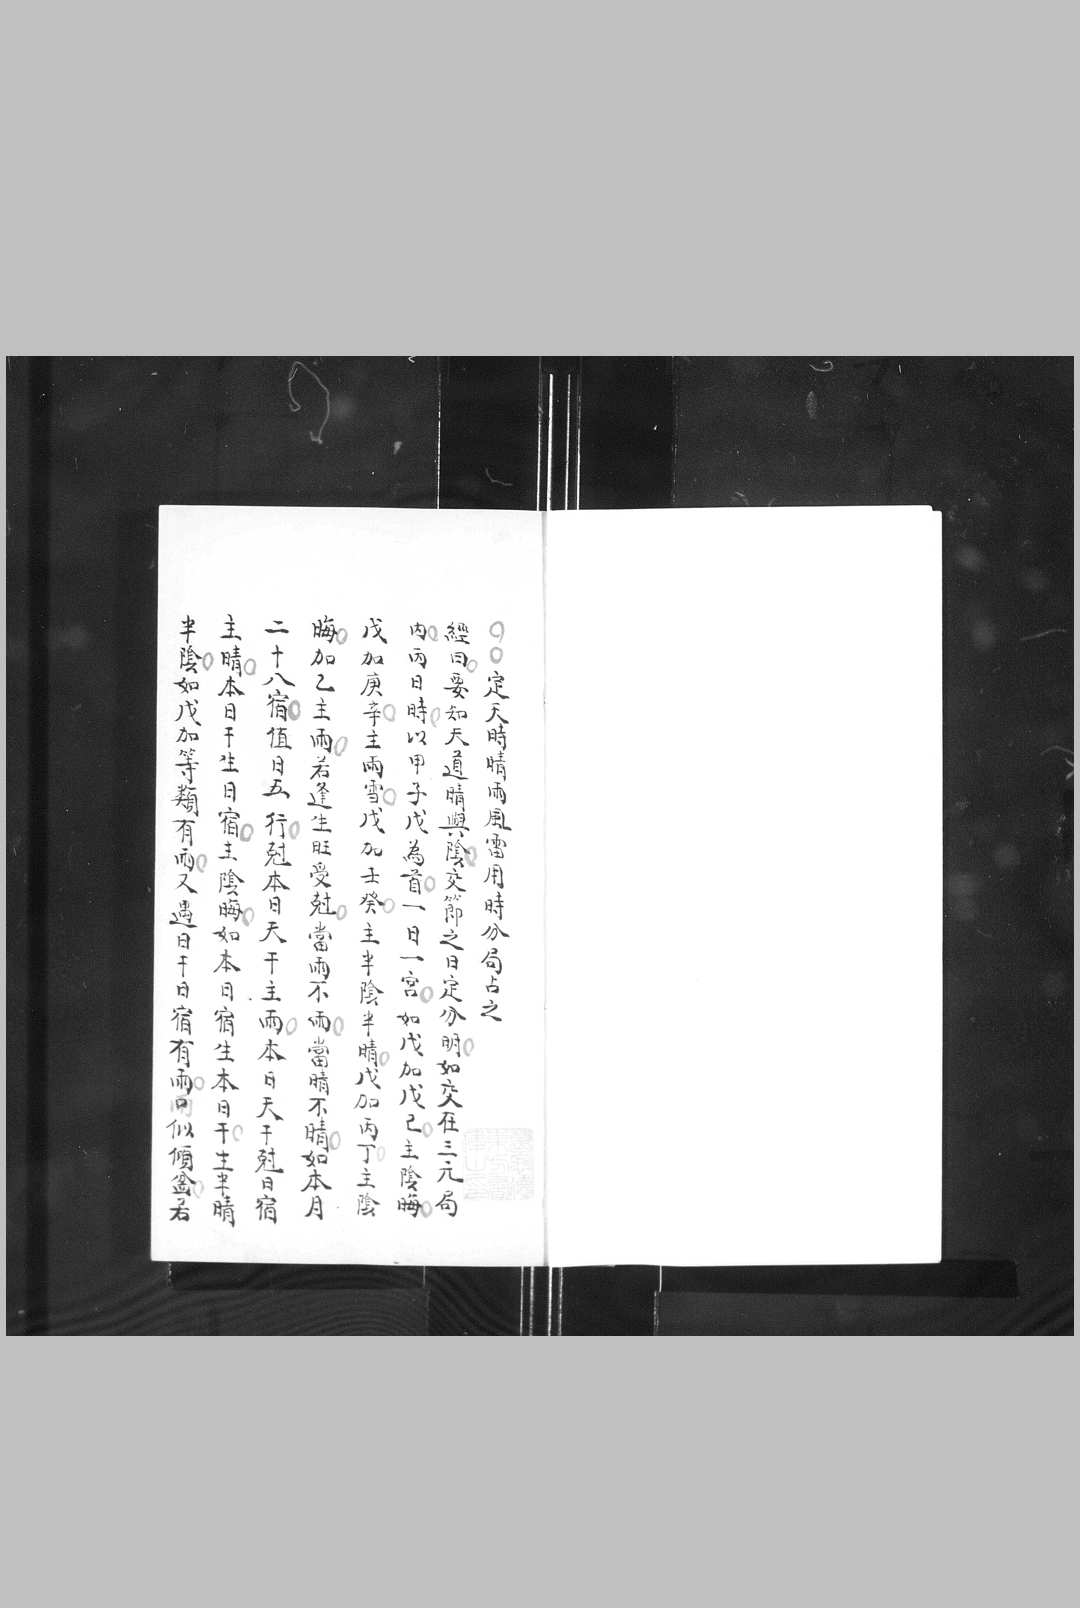 定天時晴雨風雷用時分局占之
經曰要知天道晴與陰交節之日定分明如交在三元局
內丙日時以甲子戊為首一日一宮如戊加戊己主陰晦
戊加庚辛主雨雪戊加壬癸主半陰半晴戊加丙丁主陰
晦加乙主雨若逢生旺受尅當雨不雨當晴不晴如本月
二十八宿值日五行尅本日天干主雨本日天干尅日宿
主晴本日干生日宿主陰晦如本日宿生本日干主半晴
半陰如戊加等類有雨又遇日干日宿有雨口似傾盆若